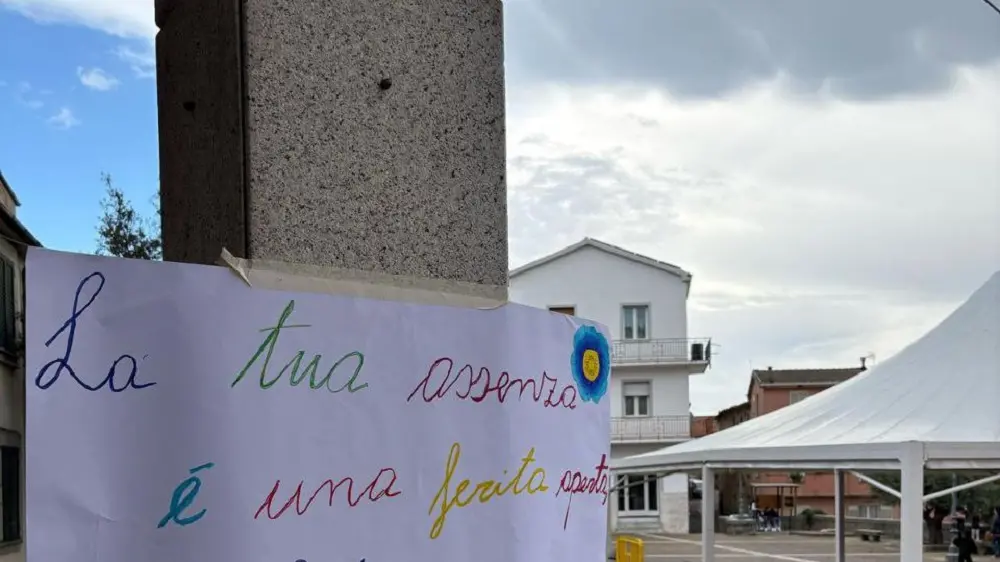 La tua assenza
è una ferita aperta